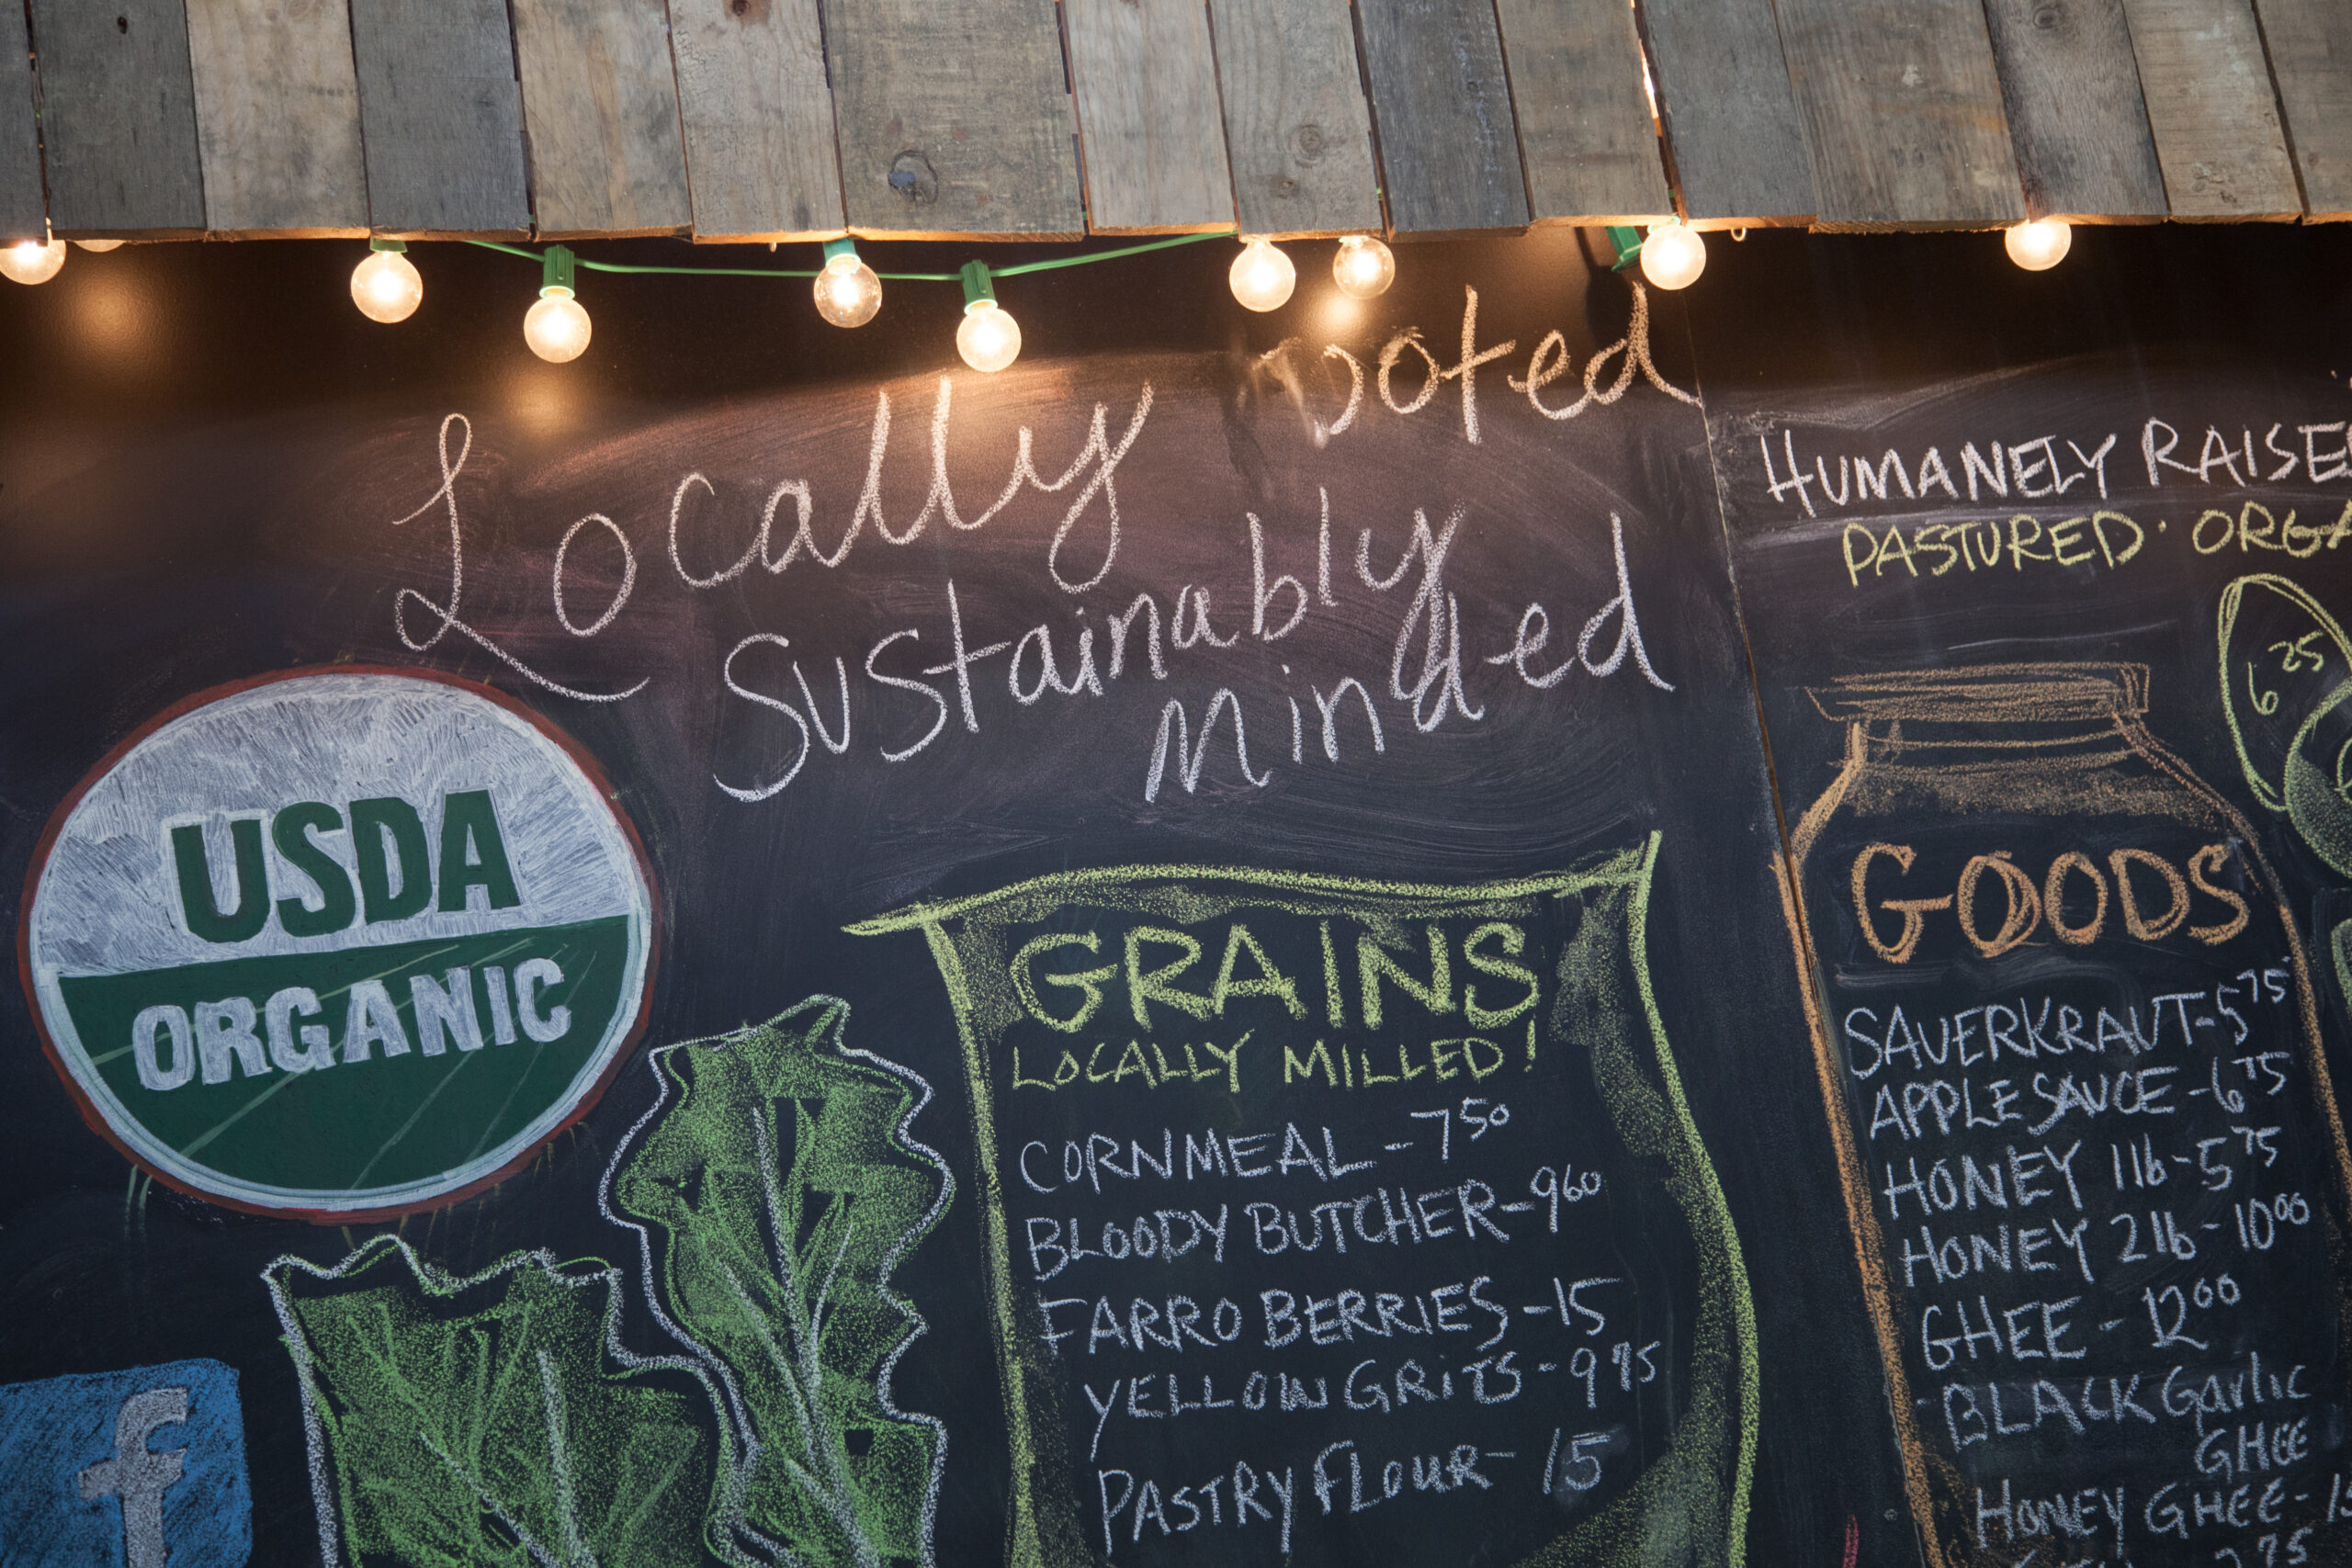 Locally
Sustainably
Minded
USDA
ORGANIC
f
GRAINS
LOCALLY MILLED!
CORNMEAL - 7 50
BLOODY BUTCHER - 9 60
FARRO BERRIES - 15
YELLOW GRITS - 9 75
PASTRY FLOUR - 15
HUMANELY
PASTURED ·
6 25
GOODS
SAUERKRAUT - 5 75
APPLE SAUCE - 6 75
HONEY 1lb - 5 75
HONEY 2lb - 10 00
GHEE - 12 00
BLACK Garlic
GHEE
HONEY GHEE -